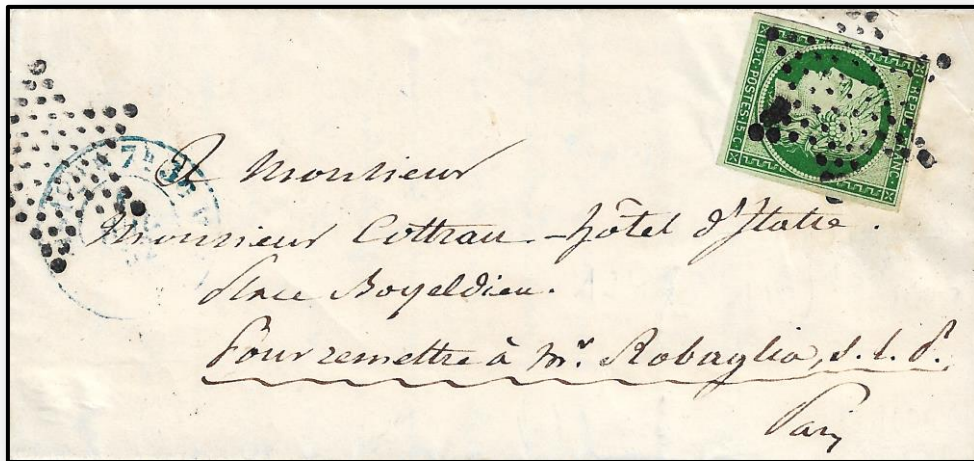 REPUB. FRANC.
15 C. POSTES 15 C.
7E
A Monsieur
Monsieur Cottrau - hôtel d'Italie.
Place Boyeldieu.
Pour remettre à Mr. Robaglia, s. l. p.
Paris